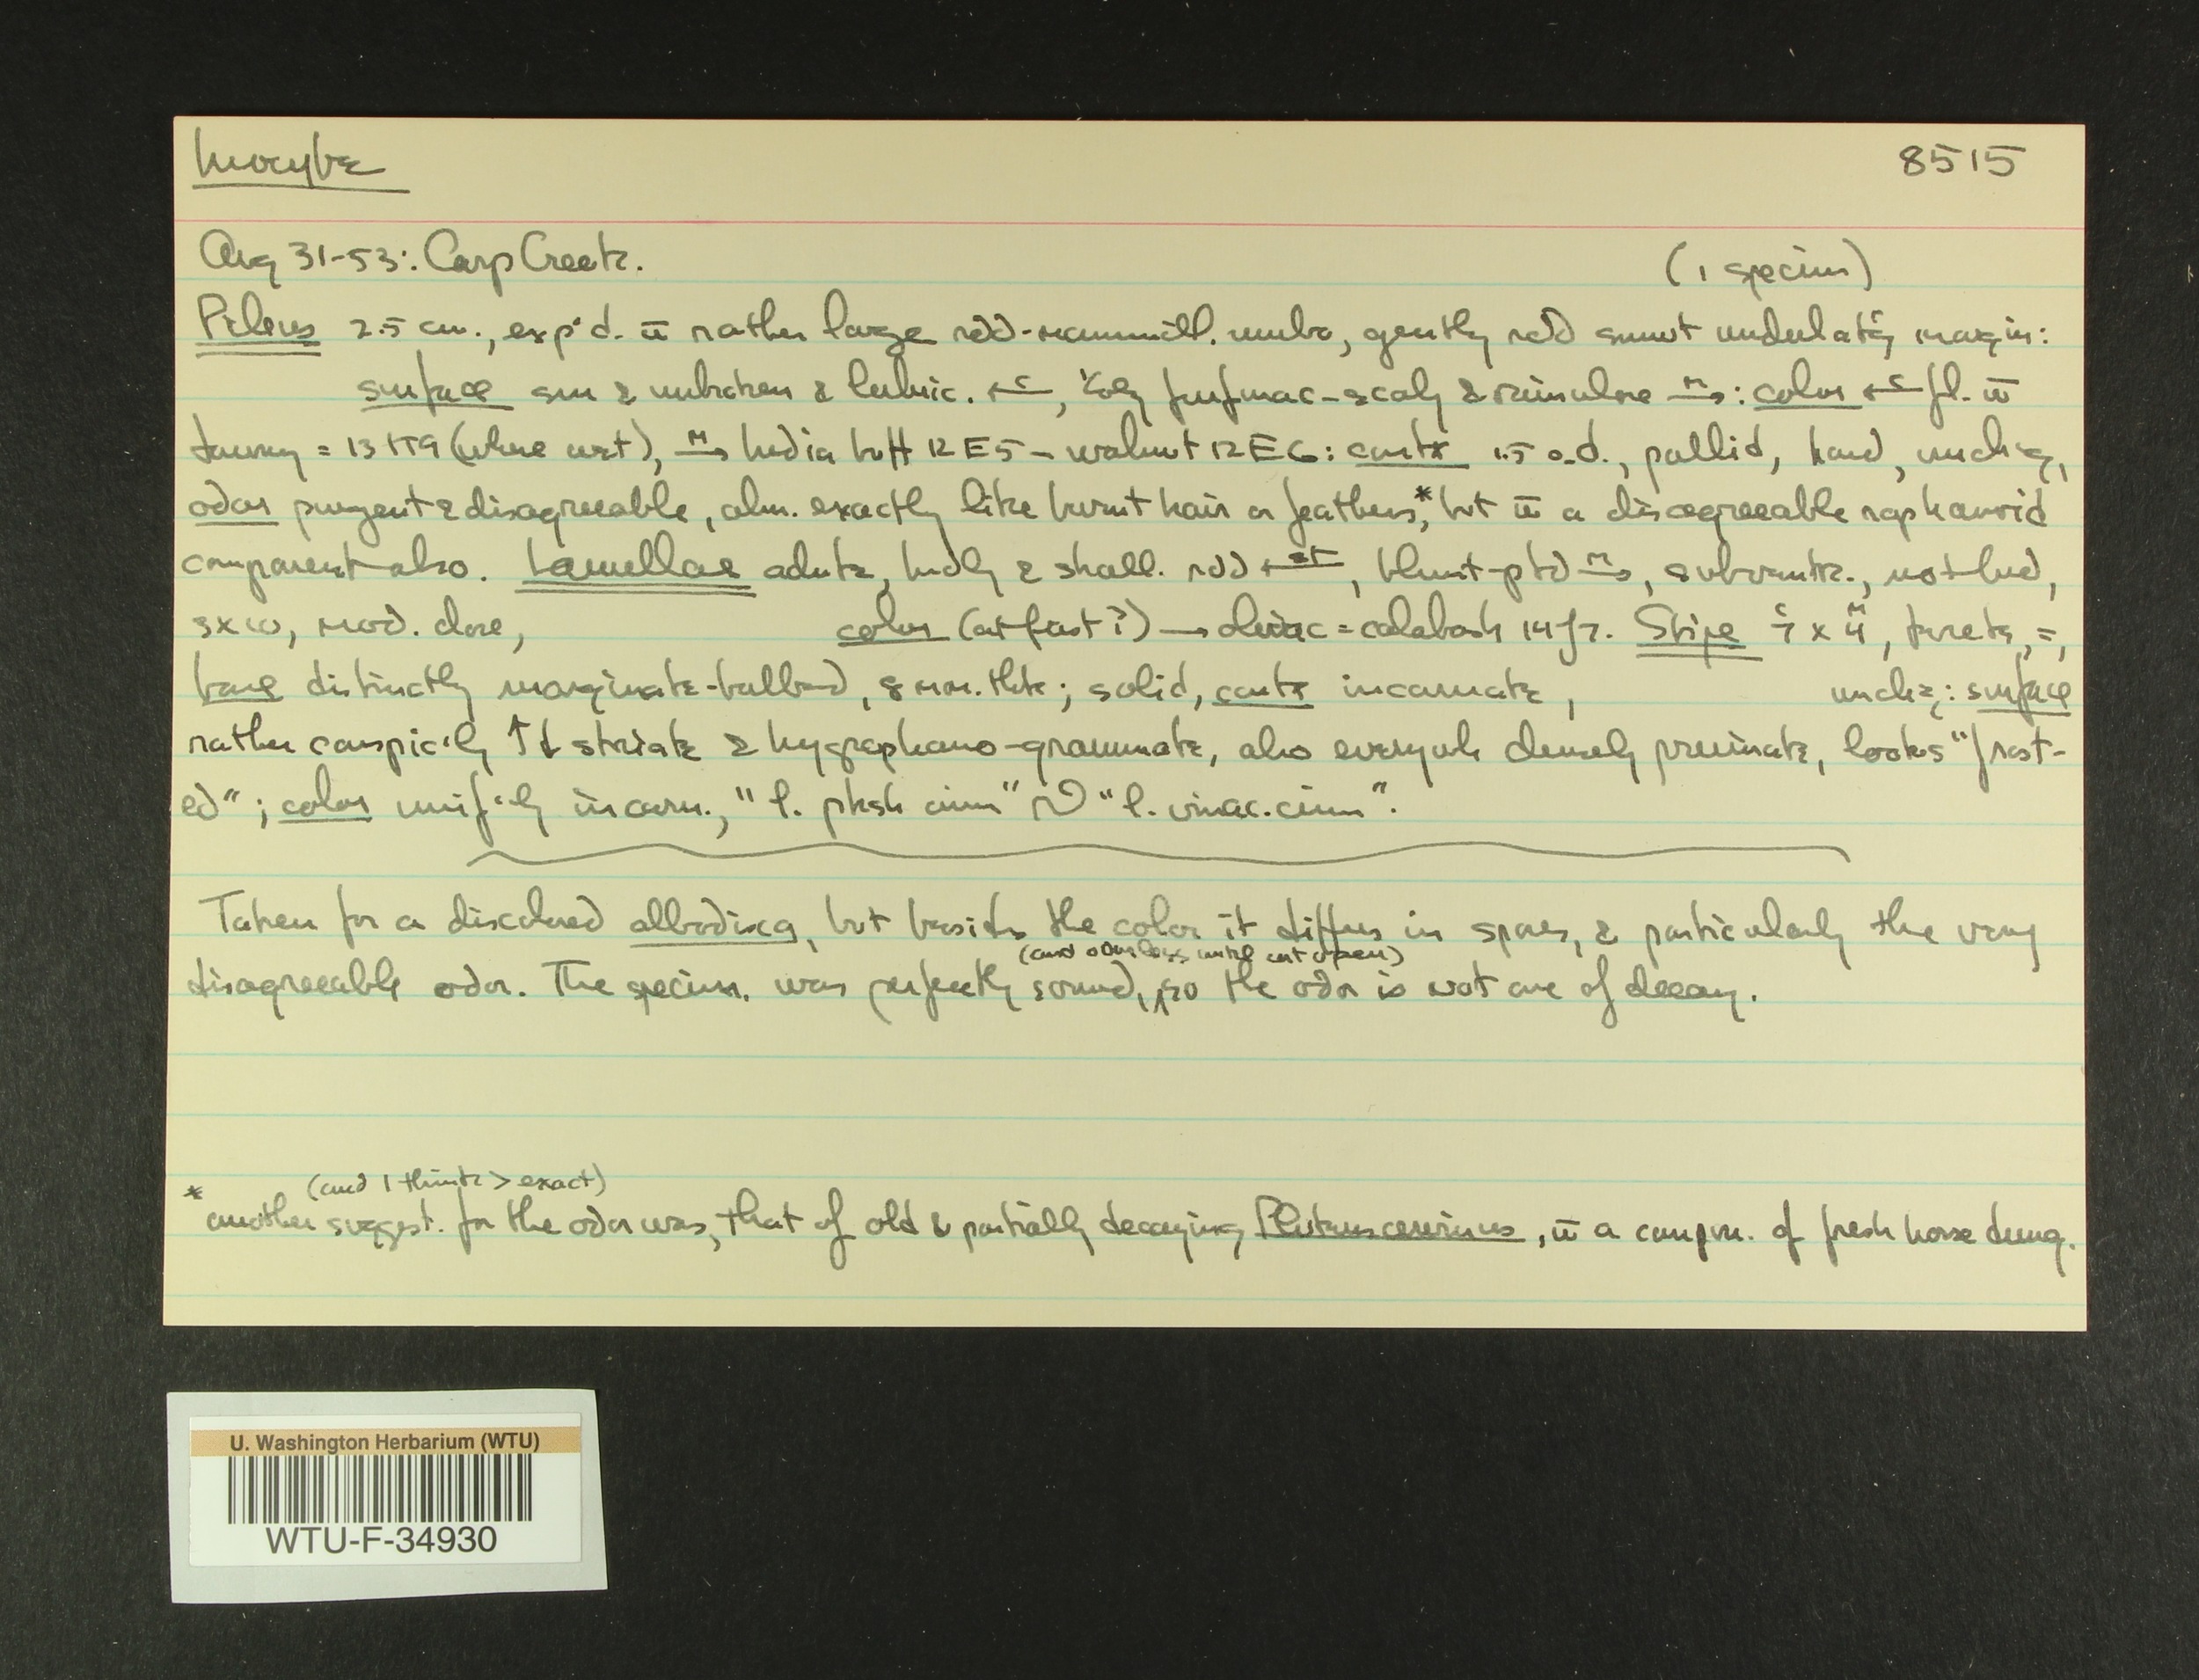 Inocybe
8515
Aug 31-53: Carp Creek.
(1 specim)
Pileus 2.5 cm., exp'd. w̄ rather large rdd-mammill. umbo, gently rdd smwt undulat'g margin:
surface sm & unbroken & lubric. ←c, furfurac-scaly & rimulose M→: color ←c fl. w̄
tawny = 13 H9 (where wet), M→ India buff 12 E5 - walnut 12 E6: contx 1.5 o.d., pallid, hard, unch'g,
odor pungent & disagreeable, alm. exactly like burnt hair or feathers,* but w̄ a disagreeable raphanoid
component also. Lamellae adnate, bdly & shall. rdd ←st, blunt-ptd M→, subventr., not bud,
3x10, mod. close, color (at first?) → olivac = calabash 14 J7. Stipe c7 x M4, terete, =,
base distinctly marginate-bulbed, 8 mm. thk; solid, contx incarnate, unch'g: surface
rather conspic'ly ↑↓ striate & hygrophano-grammate, also everywh densely pruinate, looks "frost-
ed"; color unif'ly incarn., "l. pksh cinn" "l. vinac. cinn".
Taken for a discolored albodisca, but besides the color it differs in spores, & particularly the very
(and odorless until cut open)
disagreeable odor. The specim. was perfectly sound, so the odor is not one of decay.
(and I think > exact)
* another suggest. for the odor was, that of old & partially decaying Pluteus cervinus, w̄ a compon. of fresh horse dung.
U. Washington Herbarium (WTU)
WTU-F-34930